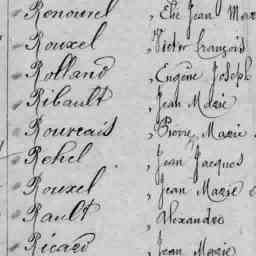 Renourel, Elie Jean Mar
Rouxel, Victor François
Rolland, Eugène Joseph
Ribault, Jean Marie
Rouvrais, Pierre Marie
Rehel, Jean Jacques
Rouxel, Jean Marie
Rault, Alexandre
Ricard, Jean Marie